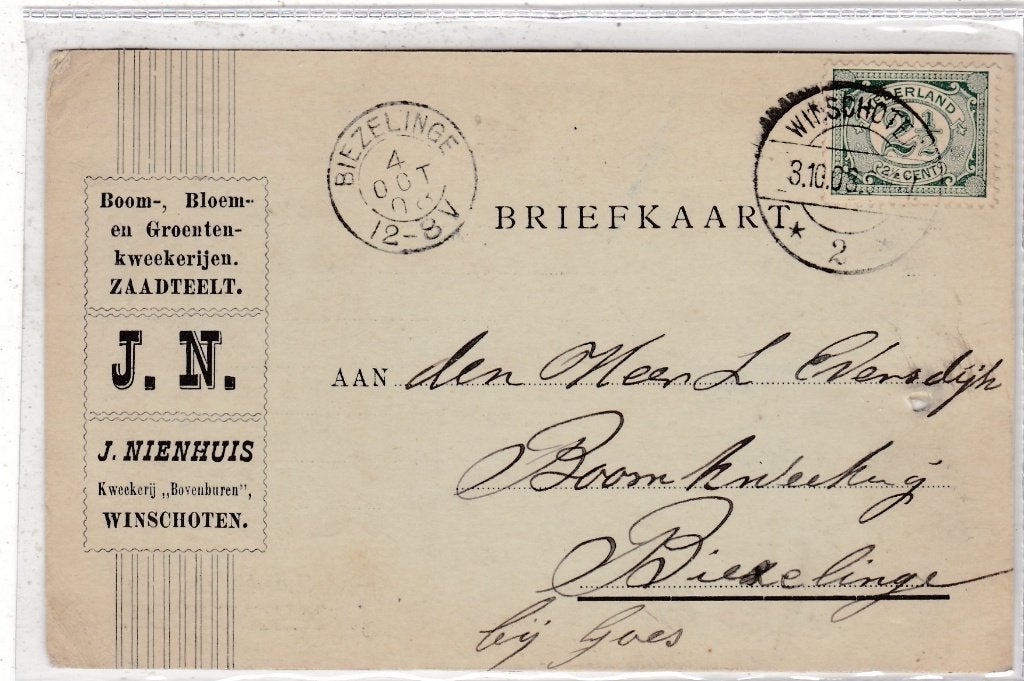 Boom-, Bloem-
en Groenten-
kweekerijen.
ZAADTEELT.
J. N.
J. NIENHUIS
Kweekerij „Bovenburen",
WINSCHOTEN.
BIEZELINGE
4
OCT
12-8V
BRIEFKAART
WINSCHOTEN
3.10.05
2
NEDERLAND
2½
2½ CENT
AAN den Heer L Eversdijk
Boomkweekerij
Biezelinge
bij Goes